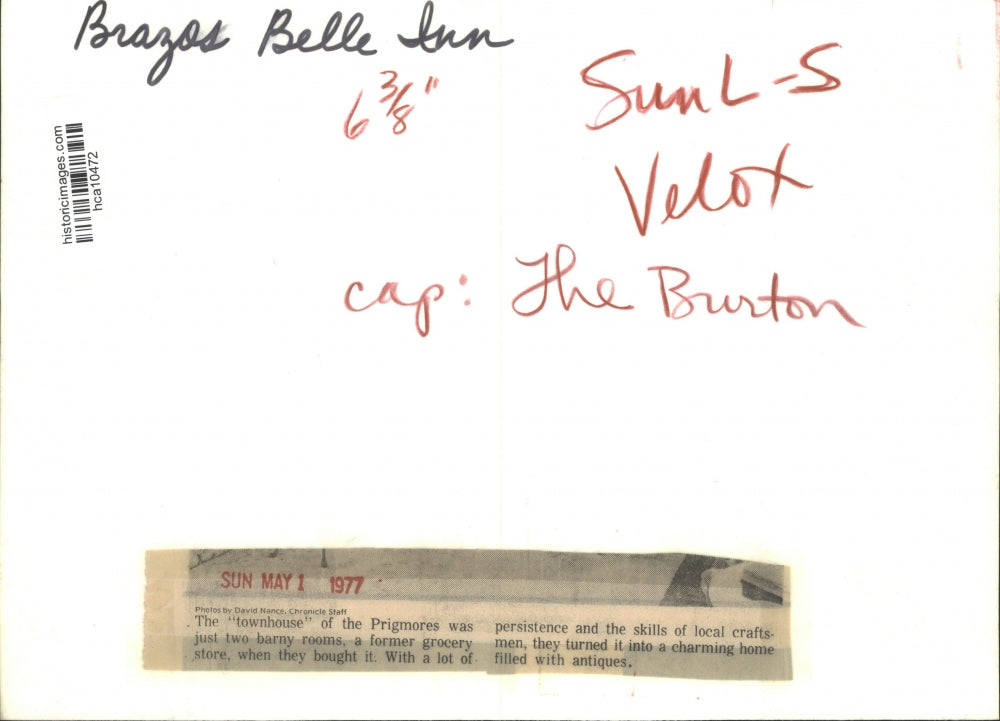 Brazos Belle Inn
6 3/8"
Sun L-S
Velox
cap: The Burton
historicimages.com
hca10472
SUN MAY 1 1977
Photos by David Nance, Chronicle Staff
The "townhouse" of the Prigmores was
just two barny rooms, a former grocery
store, when they bought it. With a lot of
persistence and the skills of local crafts-
men, they turned it into a charming home
filled with antiques.